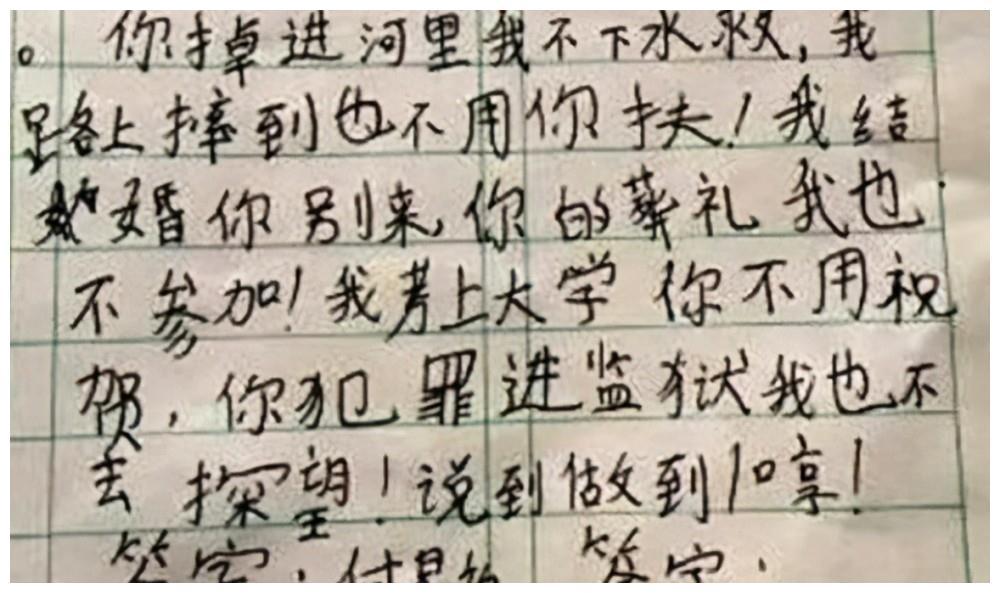 。你掉进河里我不下水救,我
路上摔到也不用你扶!我结
婚你别来,你的葬礼我也
不参加!我考上大学你不用祝
贺,你犯罪进监狱我也不
去探望!说到做到!哼!
签字: 签字: